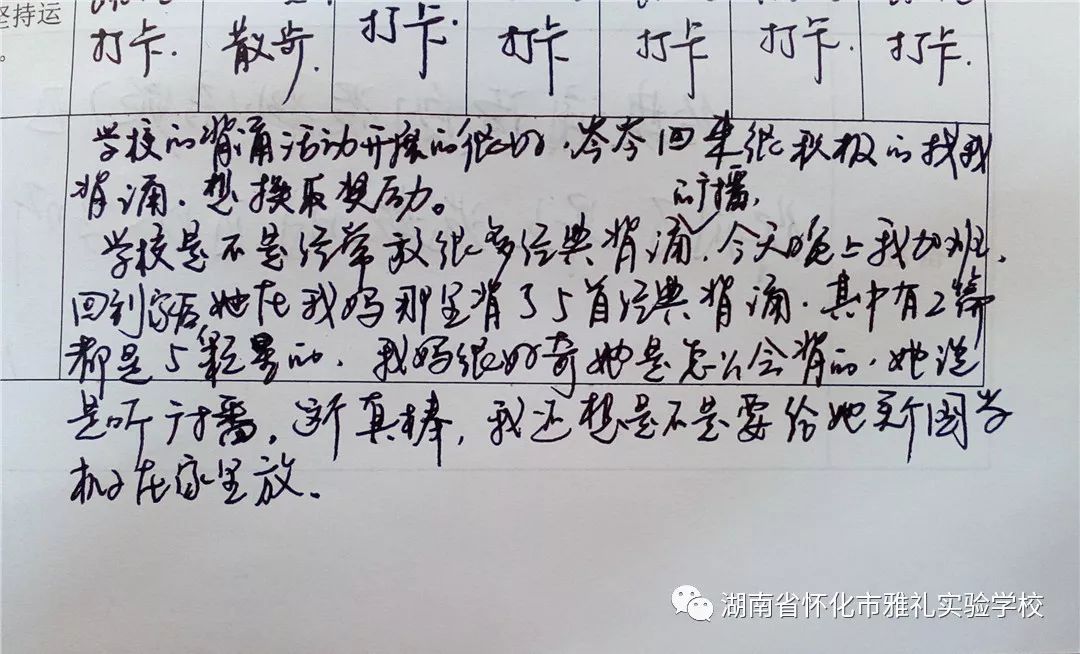 坚持运
。
打卡. 散步. 打卡. 打卡 打卡 打卡. 打卡.
学校的背诵活动开展的很好，岑岑回来很积极的找我
背诵，想换取奖励。
的广播，
学校是不是经常放很多经典背诵，今天晚上我加班，
回到家后，她在我妈那里背了5首经典背诵，其中有2篇
都是5颗星的，我妈很好奇她是怎么会背的，她说
是听广播，这个真棒，我还想是不是要给她买个国学
机子在家里放。
湖南省怀化市雅礼实验学校